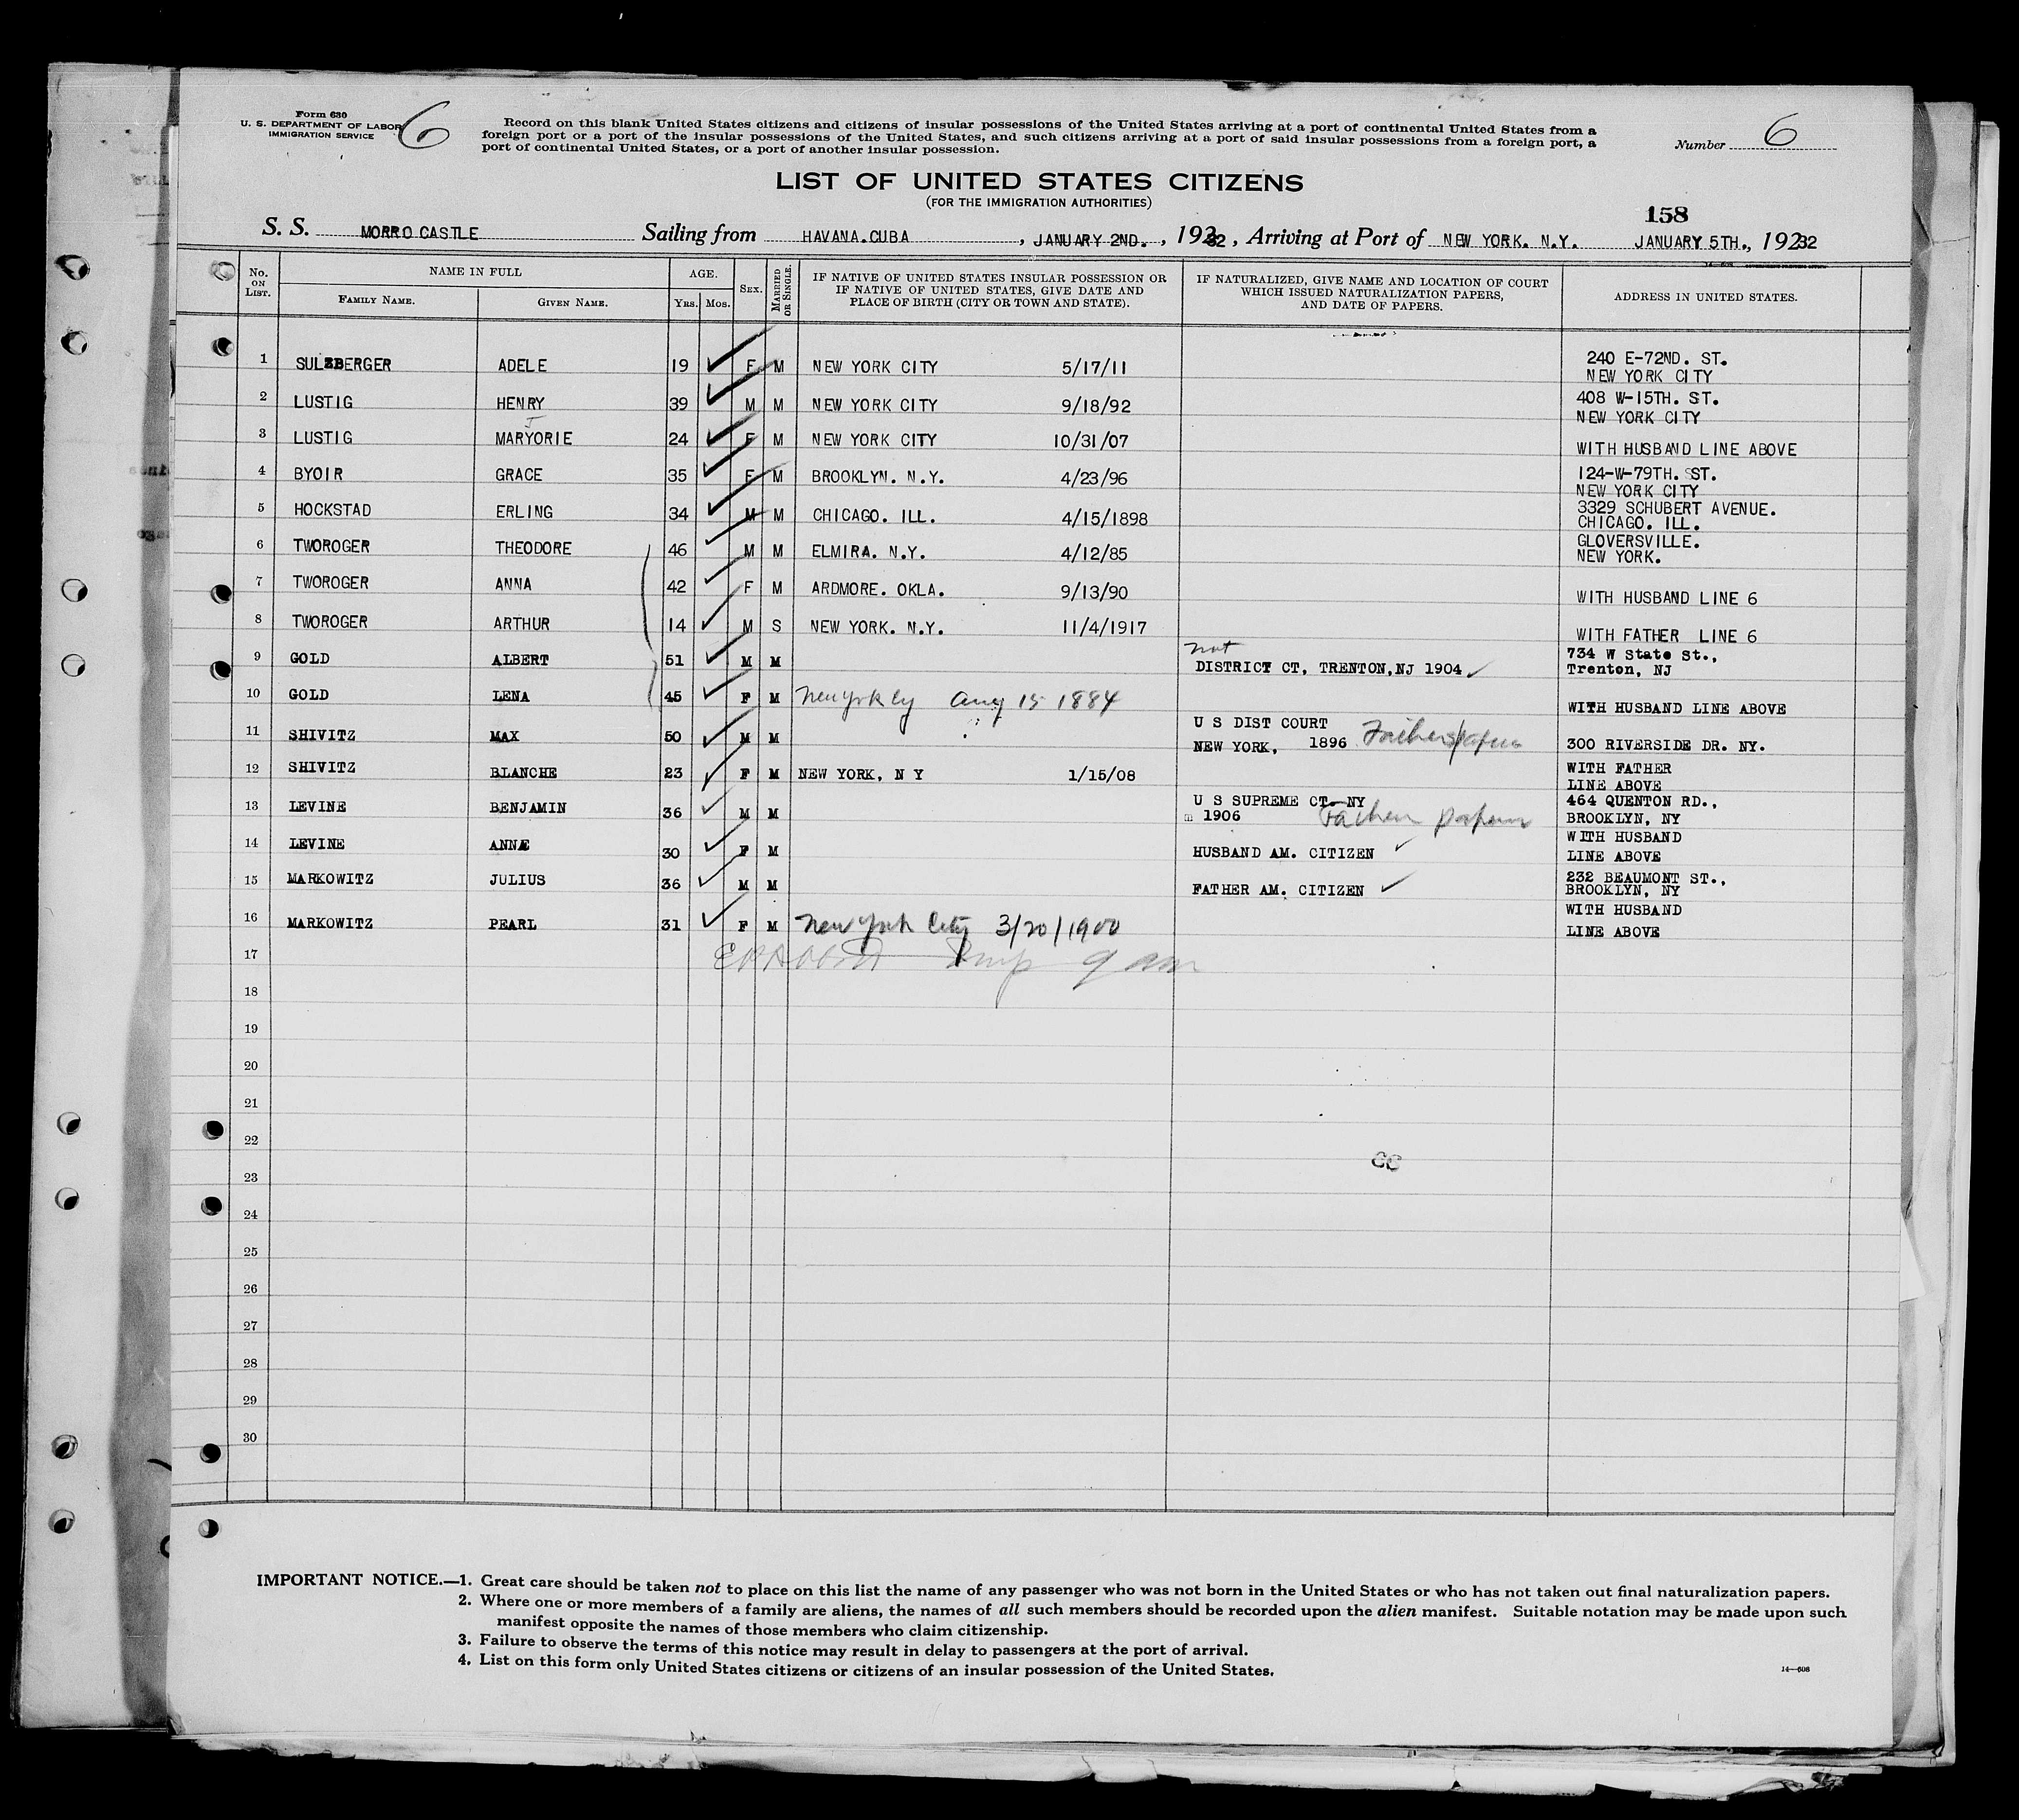 Form 630
U. S. DEPARTMENT OF LABOR
IMMIGRATION SERVICE
6
Record on this blank United States citizens and citizens of insular possessions of the United States arriving at a port of continental United States from a
foreign port or a port of the insular possessions of the United States, and such citizens arriving at a port of said insular possessions from a foreign port, a
port of continental United States, or a port of another insular possession.
Number 6
LIST OF UNITED STATES CITIZENS
(FOR THE IMMIGRATION AUTHORITIES)
158
S. S. MORRO CASTLE Sailing from HAVANA.CUBA , JANUARY 2ND. , 19232 , Arriving at Port of NEW YORK. N.Y. JANUARY 5TH., 19232
No. ON LIST. NAME IN FULL AGE. SEX. MARRIED OR SINGLE. IF NATIVE OF UNITED STATES INSULAR POSSESSION OR IF NATIVE OF UNITED STATES, GIVE DATE AND PLACE OF BIRTH (CITY OR TOWN AND STATE). IF NATURALIZED, GIVE NAME AND LOCATION OF COURT WHICH ISSUED NATURALIZATION PAPERS, AND DATE OF PAPERS. ADDRESS IN UNITED STATES.
FAMILY NAME. GIVEN NAME. YRS. MOS.
1 SULZBERGER ADELE 19 F M NEW YORK CITY 5/17/11 240 E-72ND. ST.
NEW YORK CITY
2 LUSTIG HENRY 39 M M NEW YORK CITY 9/18/92 408 W-15TH. ST.
NEW YORK CITY
J
3 LUSTIG MARYORIE 24 F M NEW YORK CITY 10/31/07 WITH HUSBAND LINE ABOVE
4 BYOIR GRACE 35 F M BROOKLYN. N.Y. 4/23/96 124-W-79TH. ST.
NEW YORK CITY
5 HOCKSTAD ERLING 34 M M CHICAGO. ILL. 4/15/1898 3329 SCHUBERT AVENUE.
CHICAGO. ILL.
6 TWOROGER THEODORE 46 M M ELMIRA. N.Y. 4/12/85 GLOVERSVILLE.
NEW YORK.
7 TWOROGER ANNA 42 F M ARDMORE. OKLA. 9/13/90 WITH HUSBAND LINE 6
8 TWOROGER ARTHUR 14 M S NEW YORK. N.Y. 11/4/1917 WITH FATHER LINE 6
not
9 GOLD ALBERT 51 M M DISTRICT CT, TRENTON,NJ 1904 734 W State St.,
Trenton, NJ
10 GOLD LENA 45 F M New York Cy Aug 15 1884 WITH HUSBAND LINE ABOVE
11 SHIVITZ MAX 50 M M U S DIST COURT
NEW YORK, 1896 Fathers papers 300 RIVERSIDE DR. NY.
12 SHIVITZ BLANCHE 23 F M NEW YORK, N Y 1/15/08 WITH FATHER
LINE ABOVE
13 LEVINE BENJAMIN 36 M M U S SUPREME CT. NY
1906 Fathers papers 464 QUENTON RD.,
BROOKLYN, NY
14 LEVINE ANNA 30 F M HUSBAND AM. CITIZEN WITH HUSBAND
LINE ABOVE
15 MARKOWITZ JULIUS 36 M M FATHER AM. CITIZEN 232 BEAUMONT ST.,
BROOKLYN, NY
16 MARKOWITZ PEARL 31 F M New York City 3/20/1900 WITH HUSBAND
LINE ABOVE
17
18
19
20
21
22
23
24
25
26
27
28
29
30
IMPORTANT NOTICE.—1. Great care should be taken not to place on this list the name of any passenger who was not born in the United States or who has not taken out final naturalization papers.
2. Where one or more members of a family are aliens, the names of all such members should be recorded upon the alien manifest. Suitable notation may be made upon such
manifest opposite the names of those members who claim citizenship.
3. Failure to observe the terms of this notice may result in delay to passengers at the port of arrival.
4. List on this form only United States citizens or citizens of an insular possession of the United States.
14—608